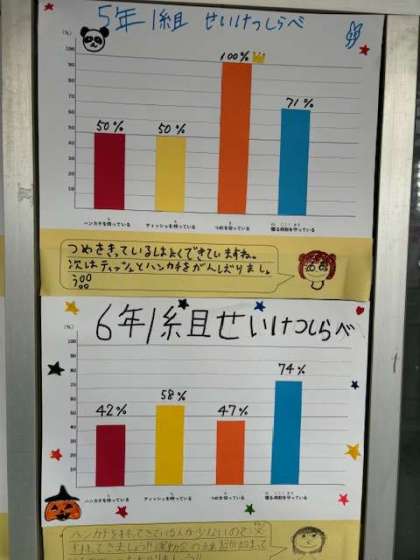 5年1組 せいけつしらべ
(%)
100
90
80
70
60
50
40
30
20
10
50% 50% 100% 71%
ハンカチを持っている ティッシュを持っている つめを切っている 寝る時刻を守っている
つめをきっているはよくできていますね。
次はティッシュとハンカチをがんばりましょう
6年1組せいけつしらべ
(%)
100
90
80
70
60
50
40
30
20
10
42% 58% 47% 74%
ハンカチを持っている ティッシュを持っている つめを切っている 寝る時刻を守っている
ハンカチをもってきている人が少ないので